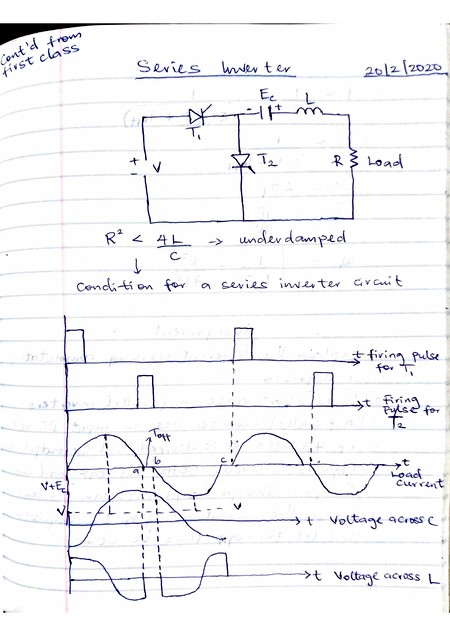 Cont'd from
first class
Series Inverter
20/2/2020
Ec
L
- +
T1
+
-
V
T2
R
Load
R² < 4L/C → underdamped
Condition for a series inverter circuit
t firing pulse
for T1
t Firing
Pulse for
T2
Toff
a
b
c
t
Load
Current
V+Ec
V
V
t Voltage across C
t Voltage across L